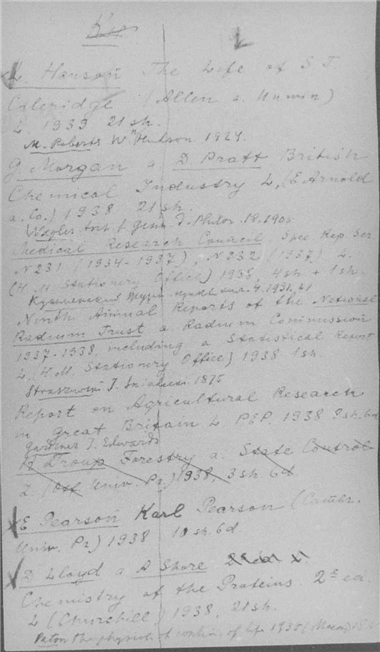 L Hanson The Life of S T
Coleridge (Allen a. Unwin)
L 1939 21 sh.
M. Roberts W. Hudson 1924.
G Morgan a D Pratt British
Chemical Industry L, (E Arnold
a. Co.) 1938 21 sh.
Medical Research Council Spec Rep Ser
N 231 (1934-1937), N 232 (1937) L
(H. M Stationery Office) 1938, 4sh + 1sh.
Ninth Annual Reports of the National
Radium Trust a Radium Commission
1937-1938, including a Statistical Report
L. H.M. Stationery Office) 1938 1sh.
1875
Report on Agricultural Research
in Great Britain L PEP. 1938 3sh. 6d
Gardiner J. Edwards
R Troup Forestry a. State Control
L (Oxf. Univ. Pr) 1938, 3 sh 6d
E Pearson Karl Pearson (Cambr.
Univ. Pr) 1938 10 sh. 6d
D Lloyd a A Shore
Chemistry of the Proteins. 2d ed.
L (Churchill) 1938, 21 sh.